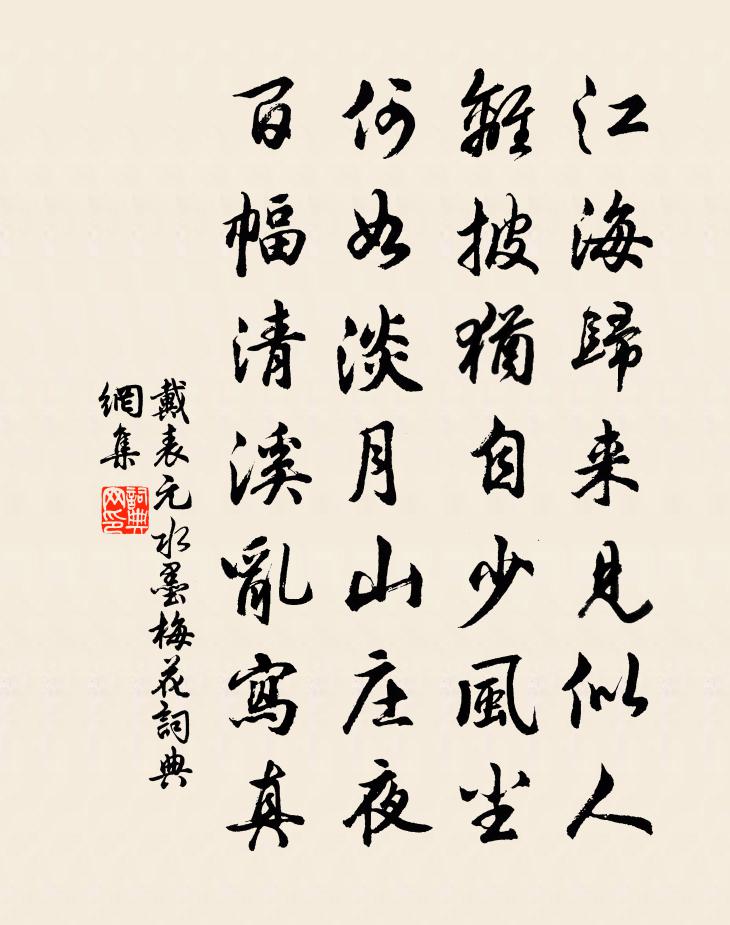 江海歸来見似人
離披猶自少風尘
何如淡月山庄夜
百幅清溪亂寫真
戴表元水墨梅花詞典
網集
詞典
网印